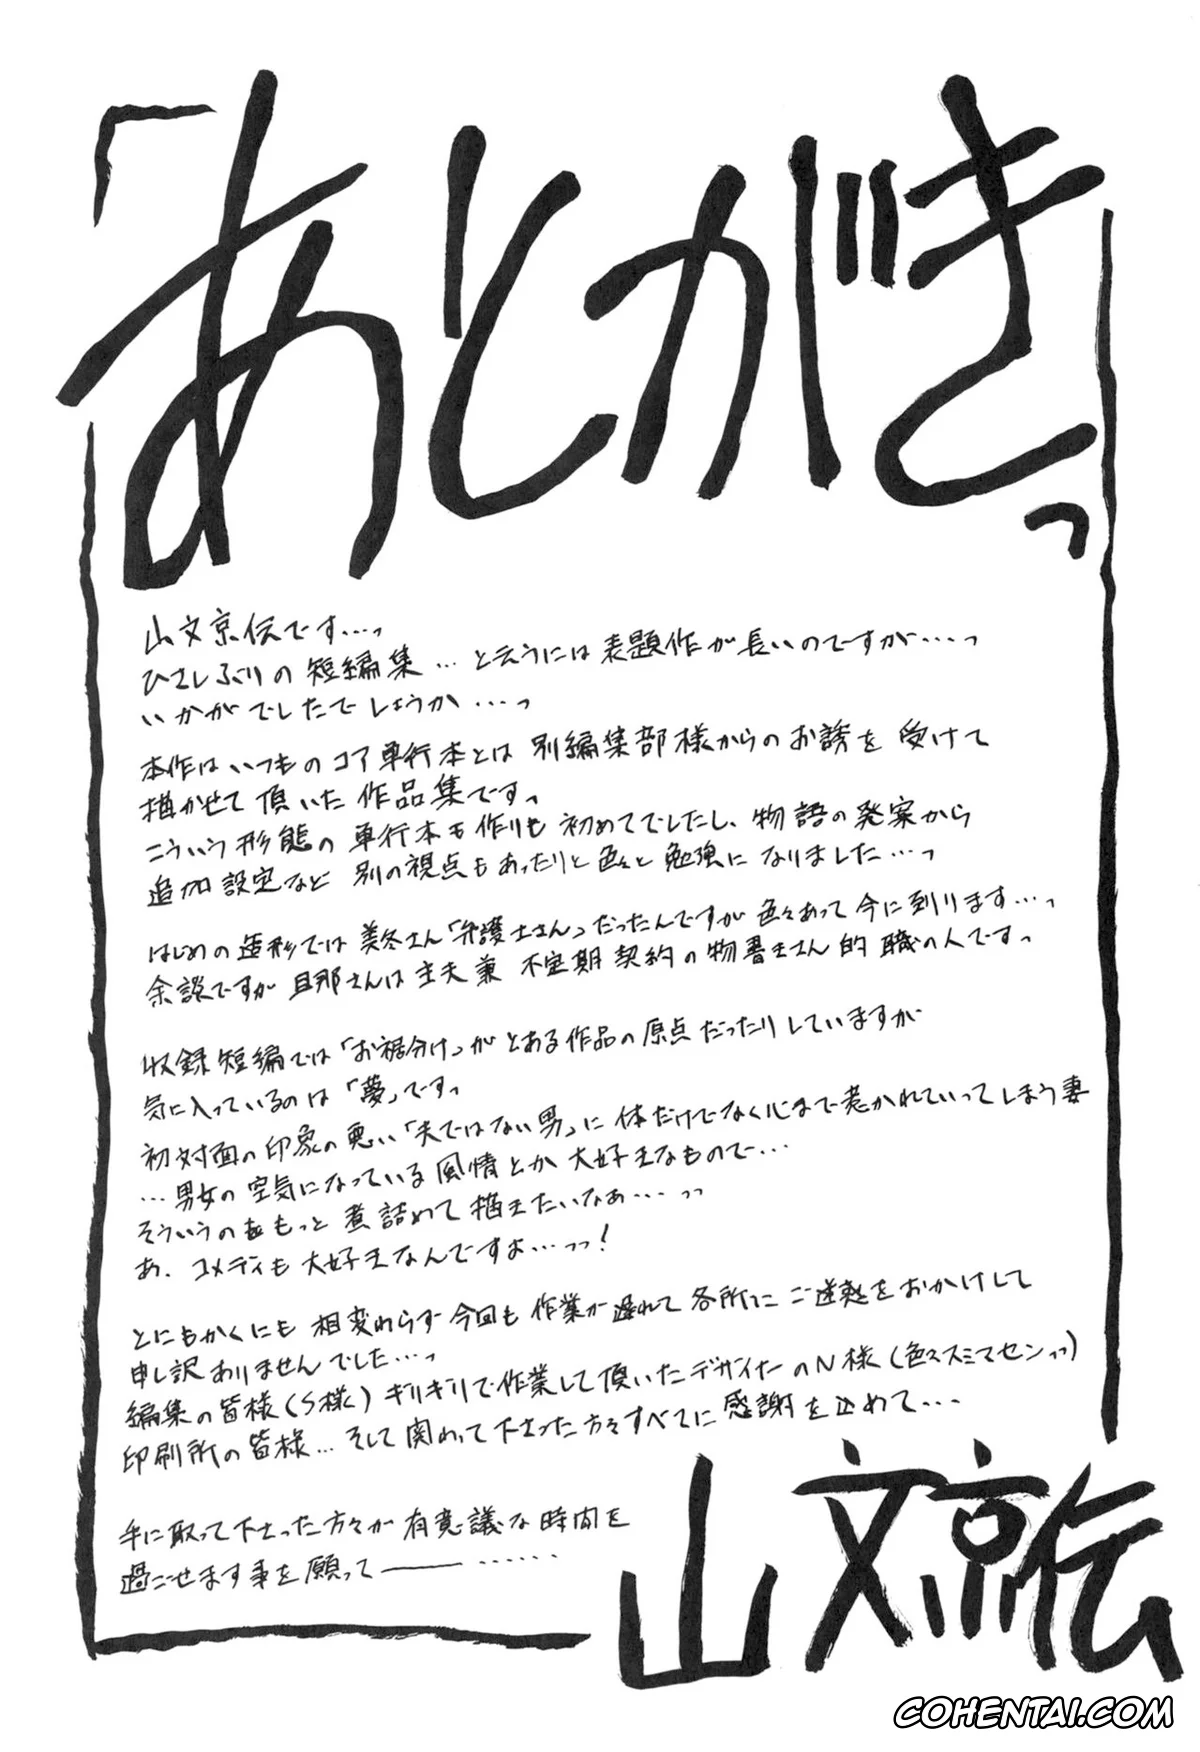 「あとがきっ
山文京伝です…っ
ひさしぶりの短編集…と云うには表題作が長いのですが…っ
いかがでしたでしょうか…っ
本作はいつものコア単行本とは別編集部様からのお誘を受けて
描かせて頂いた作品集ですっ
こういう形態の単行本も作りも初めてでしたし、物語の発案から
追加設定など別の視点もあったりと色々と勉強になりました…っ
はじめの造形では美冬さん「弁護士さん」だったんですが色々あって今に到ります…っ
余談ですが旦那さんは主夫兼不定期契約の物書きさん的職の人ですっ
収録短編では「お裾分け」がとある作品の原点だったりしていますが
気に入っているのは「夢」ですっ
初対面の印象の悪い「夫ではない男」に体だけでなく心まで惹かれていってしまう妻
…男女の空気になっている風情とか大好きなもので…
そういうのをもっと煮詰めて描きたいなぁ…っっ
あ、コメディも大好きなんですよ…っっ!
とにもかくにも相変わらず今回も作業が遅れて各所にご迷惑をおかけして
申し訳ありませんでした…っ
編集の皆様(S様)ギリギリで作業して頂いたデザイナーのN様(色々スミマセンっっ)
印刷所の皆様…そして関わって下さった方々すべてに感謝を込めて…
手に取って下さった方々が有意義な時間を
過ごせます事を願って――……
山文京伝
COHENTAI.COM